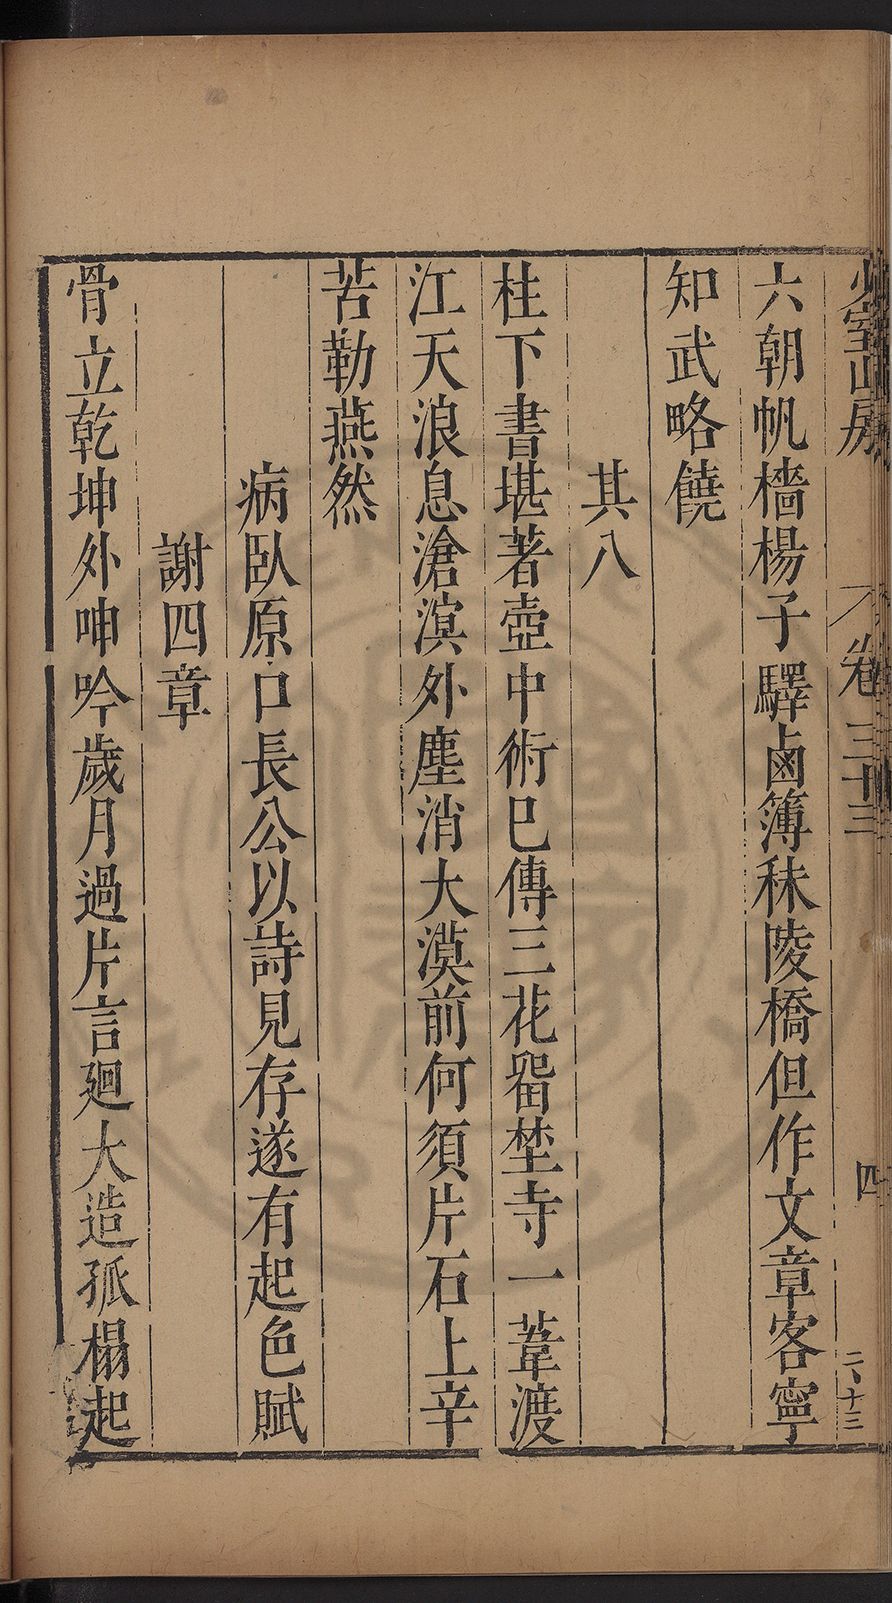 少室山房
卷三十三
四
二、十三
六朝帆檣楊子驛鹵簿秣陵橋但作文章客寧
知武略饒
其八
柱下書堪著壺中術巳傳三花畱埜寺一葦渡
江天浪息滄溟外塵消大漠前何須片石上辛
苦勒燕然
病臥原口長公以詩見存遂有起色賦
謝四章
骨立乾坤外呻吟歲月過片言廻大造孤榻起